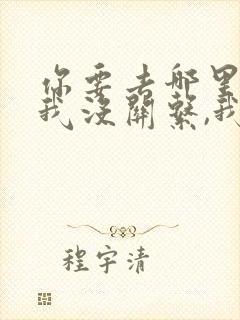 你要去哪里
我没關繫,我
程宇清